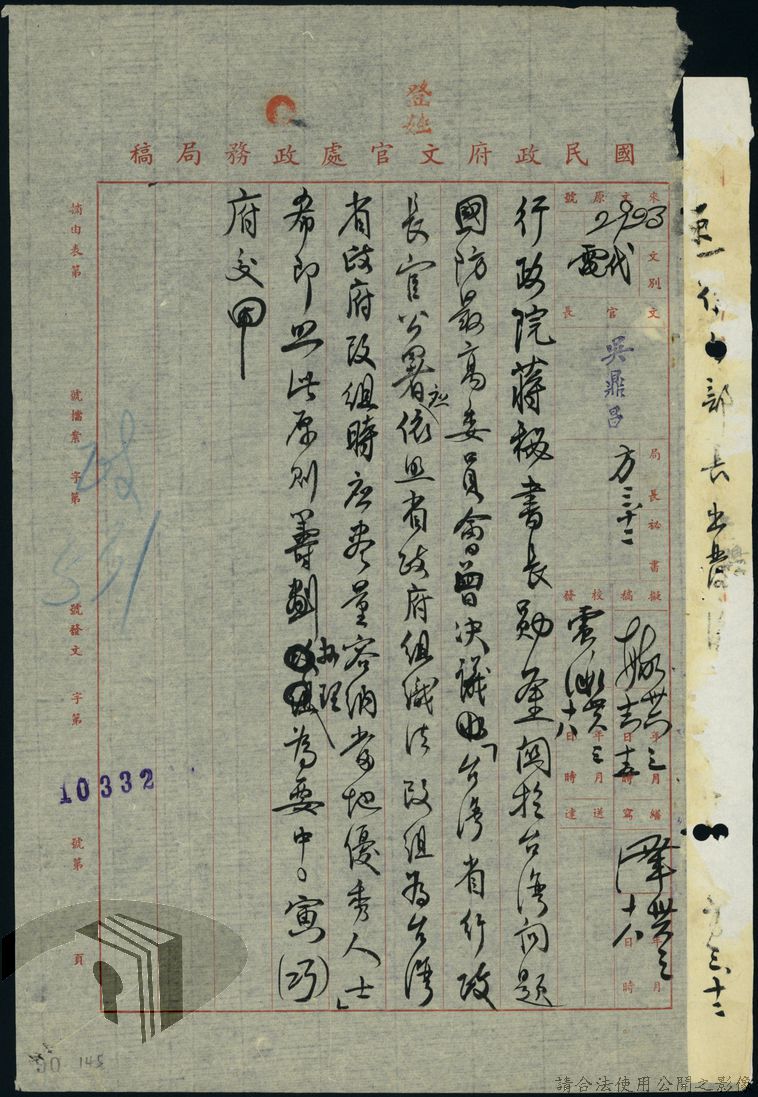 登
國民政府文官處政務局稿
來文原號
2993
文別
代電
文官長
吳鼎昌
局長
方 三、十二
祕書
擬稿
年月日時
繕寫
年月日時
校發
年月日時送達
行政院蔣秘書長勛鑒關於台灣問題
國防最高委員會曾決議「台灣省行政
長官公署應依照省政府組織法改組為台灣
省政府改組時應盡量容納當地優秀人士」
希即照此原則籌劃辦理為要中○寅(巧)
府交甲
摘由表第
號檔案 字第
號發文 字第
10332
號第
頁
部長出費
145
請合法使用公開之影像